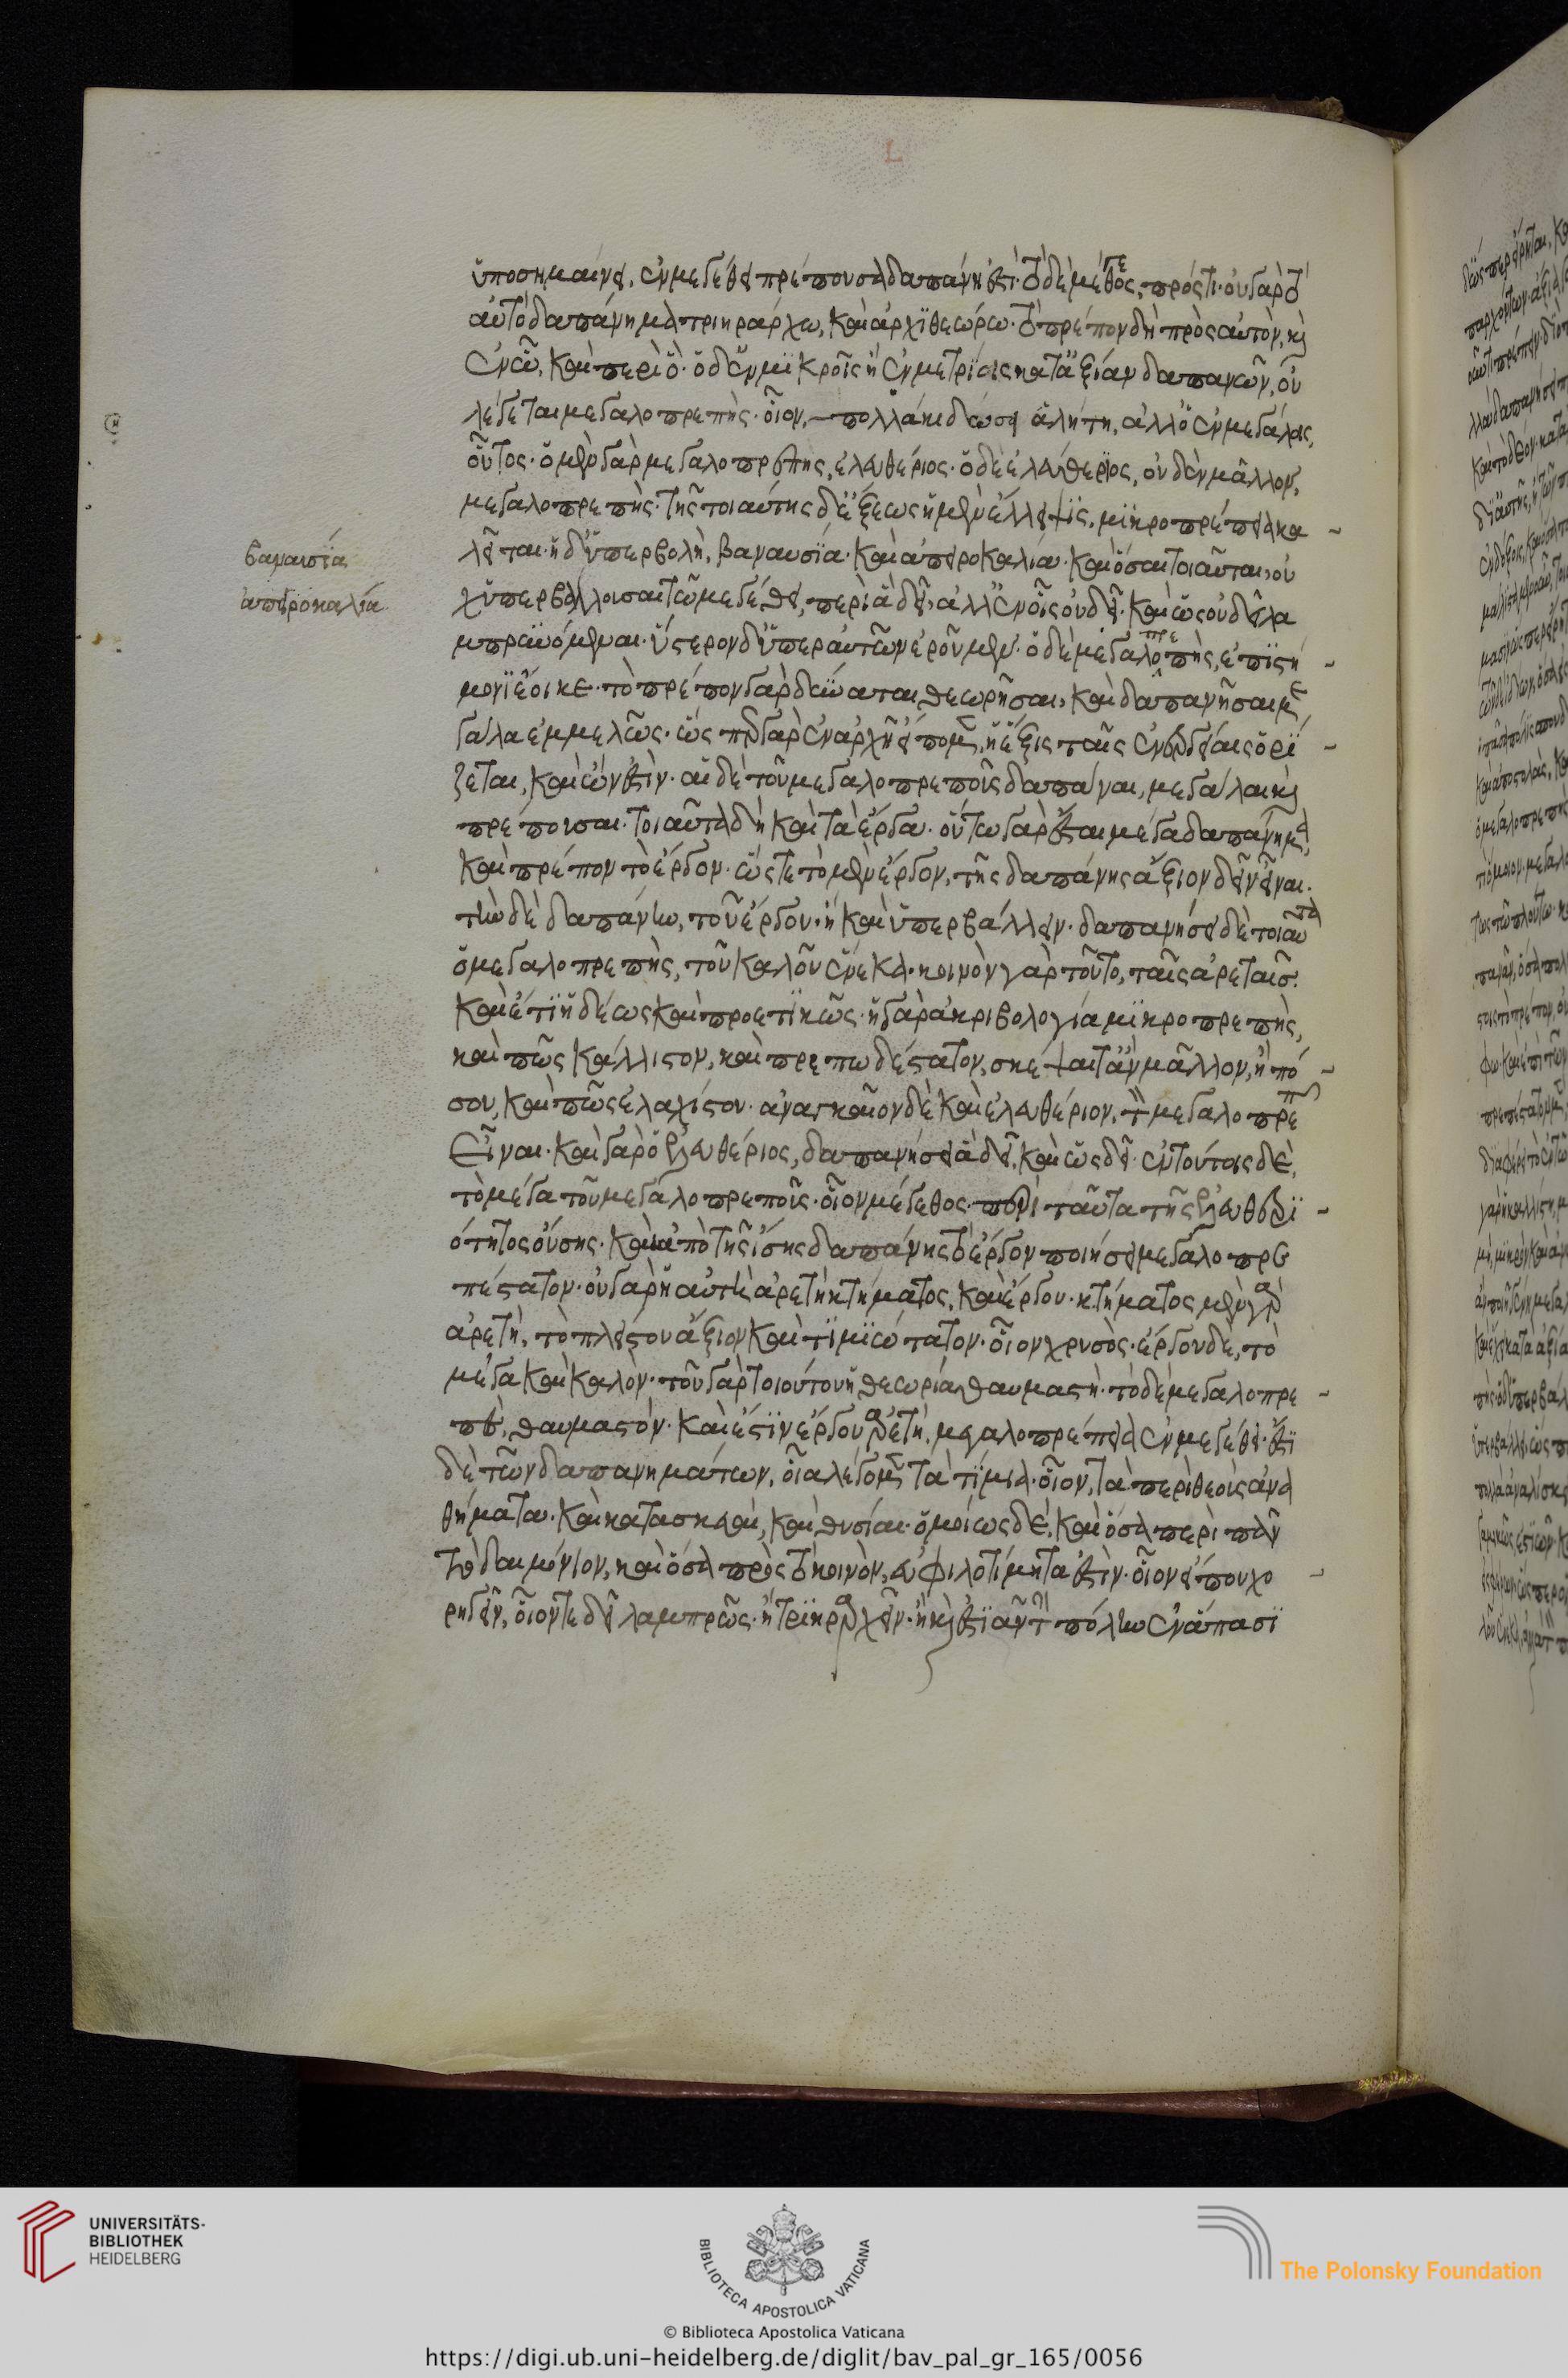 ὑποσημαίνει, ἐν μεγέθει πρέπουσα δαπάνη ἐστί· τὸ δὲ μέγεθος, πρός τι· οὐ γὰρ τὸ
αὐτὸ δαπάνημα τριηράρχω, καὶ ἀρχιθεωρῶ· τὸ πρέπον δὴ πρὸς αὐτὸν, καὶ
ἐν ᾧ, καὶ περὶ ὅ· ὁ δ' ἐν μικροῖς ἢ ἐν μετρίοις κατ' ἀξίαν δαπανῶν, οὐ
λέγεται μεγαλοπρεπής· οἷον, πολλάκι δώσει ἀλήτη, ἀλλ' ὁ ἐν μεγάλοις,
οὗτος· ὁ μὲν γὰρ μεγαλοπρεπής, ἐλευθέριος· ὁ δὲ ἐλευθέριος, οὐδὲν μᾶλλον,
μεγαλοπρεπής· τῆς τοιαύτης δ' ἕξεως ἡ μὲν ἔλλειψις, μικροπρέπεια κα-
λεῖται· ἡ δ' ὑπερβολὴ, βαναυσία· καὶ ἀπειροκαλία· καὶ ὅσαι τοιαῦται, οὐ
χ' ὑπερβάλλουσαι τῶ μεγέθει, περὶ ἃ δεῖ, ἀλλ' ἐν οἷς οὐ δεῖ· καὶ ὡς οὐ δεῖ λα
μπρυνόμεναι· ὕστερον δ' ὑπὲρ αὐτῶν ἐροῦμεν· ὁ δὲ μεγαλοπρεπὴς, ἐπιστή-
μονι ἔοικε· τὸ πρέπον γὰρ δύναται θεωρῆσαι, καὶ δαπανῆσαι με
γάλα ἐμμελῶς· ὥσπερ γὰρ ἐν ἀρχῇ εἴπομεν, ἡ ἕξις ταῖς ἐνεργείαις ὁρί-
ζεται, καὶ ὧν ἐστὶν· αἱ δὲ τοῦ μεγαλοπρεποῦς δαπάναι, μεγάλαι καὶ
πρέπουσαι· τοιαῦτα δὴ καὶ τὰ ἔργα· οὕτω γὰρ ἔσται μέγα δαπάνημα,
καὶ πρέπον τὸ ἔργον· ὥστε τὸ μὲν ἔργον, τῆς δαπάνης ἄξιον δεῖν εἶναι·
τὴν δὲ δαπάνην, τοῦ ἔργου· ἢ καὶ ὑπερβάλλειν· δαπανήσει δὲ τοιαῦτα
ὁ μεγαλοπρεπὴς, τοῦ καλοῦ ἕνεκα· κοινὸν γὰρ τοῦτο, ταῖς ἀρεταῖς·
καὶ ἔτι ἡδέως καὶ προετικῶς· ἡ γὰρ ἀκριβολογία μικροπρεπὴς,
καὶ πῶς κάλλιστον, καὶ πρεπωδέστατον, σκέψαιτ' ἂν μᾶλλον, ἢ πό-
σου, καὶ πῶς ἐλαχίστου· ἀναγκαῖον δὲ καὶ ἐλευθέριον, τὸν μεγαλοπρεπῆ
εἶναι· καὶ γὰρ ὁ ἐλευθέριος, δαπανήσει ἃ δεῖ, καὶ ὡς δεῖ· ἐν τούτοις δὲ,
τὸ μέγα τοῦ μεγαλοπρεποῦς· οἷον μέγεθος· περὶ ταῦτα τῆς ἐλευθερι-
ότητος οὔσης· καὶ ἀπὸ τῆς ἴσης δαπάνης τὸ ἔργον ποιήσει μεγαλοπρε
πέστατον· οὐ γὰρ ἡ αὐτὴ ἀρετὴ κτήματος, καὶ ἔργου· κτήματος μὲν γὰρ
ἀρετὴ, τὸ πλείστου ἄξιον καὶ τιμιώτατον· οἷον χρυσός· ἔργου δὲ, τὸ
μέγα καὶ καλόν· τοῦ γὰρ τοιούτου ἡ θεωρία θαυμαστή· τὸ δὲ μεγαλοπρε-
πὲς, θαυμαστόν· καὶ ἔστιν ἔργου ἀρετὴ, μεγαλοπρέπεια ἐν μεγέθει· ἔστι
δὲ τῶν δαπανημάτων, οἷα λέγομεν τὰ τίμια· οἷον, τὰ περὶ θεοὺς ἀνα
θήματα· καὶ κατασκευαὶ, καὶ θυσίαι· ὁμοίως δὲ, καὶ ὅσα περὶ πᾶν
τὸ δαιμόνιον, καὶ ὅσα πρὸς τὸ κοινὸν, εὐφιλοτίμητα ἐστὶν· οἷον εἴ που χο-
ρηγεῖν, οἴονται δεῖν λαμπρῶς· ἢ τριηραρχεῖν· ἢ καὶ ἑστιᾶν τὴν πόλιν ἐν ἅπασι
βαναυσία
ἀπειροκαλία
UNIVERSITÄTS-
BIBLIOTHEK
HEIDELBERG
BIBLIOTECA APOSTOLICA VATICANA
© Biblioteca Apostolica Vaticana
The Polonsky Foundation
https://digi.ub.uni-heidelberg.de/diglit/bav_pal_gr_165/0056